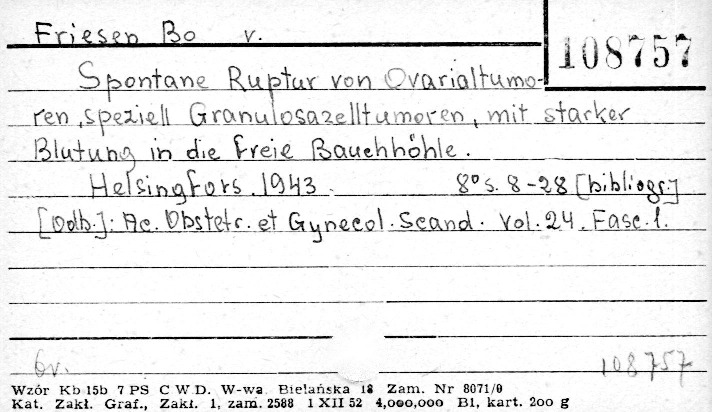 Friesen Bo v.
108757
Spontane Ruptur von Ovarialtumo-
ren, speziell Granulosazelltumoren, mit starker
Blutung in die freie Bauchhöhle.
Helsingfors. 1943. 8° s. 8-28 [bibliogr.]
[Odb.]: Ac. Obstetr. et Gynecol. Scand. Vol. 24. Fasc. 1.
108757
Wzór Kb 15b 7 PS C W D. W-wa Bielańska 18 Zam. Nr 8071/0
Kat. Zakł. Graf., Zakł. 1, zam. 2588 1 XII 52 4,000,000 B1, kart. 200 g